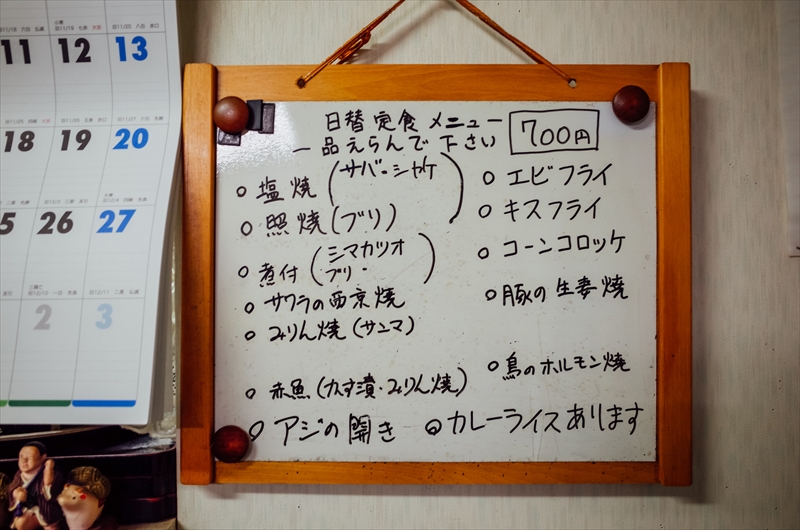 11 12 13
18 19 20
5 26 27
2 3
日替定食 メニュー
一品えらんで下さい
700円
○塩焼(サバ・シャケ)
○照焼(ブリ)
○煮付(シマカツオ
ブリ・)
○サワラの西京焼
○みりん焼(サンマ)
○赤魚(カス漬・みりん焼)
○アジの開き
○エビフライ
○キスフライ
○コーンコロッケ
○豚の生姜焼
○鳥のホルモン焼
◎カレーライスあります